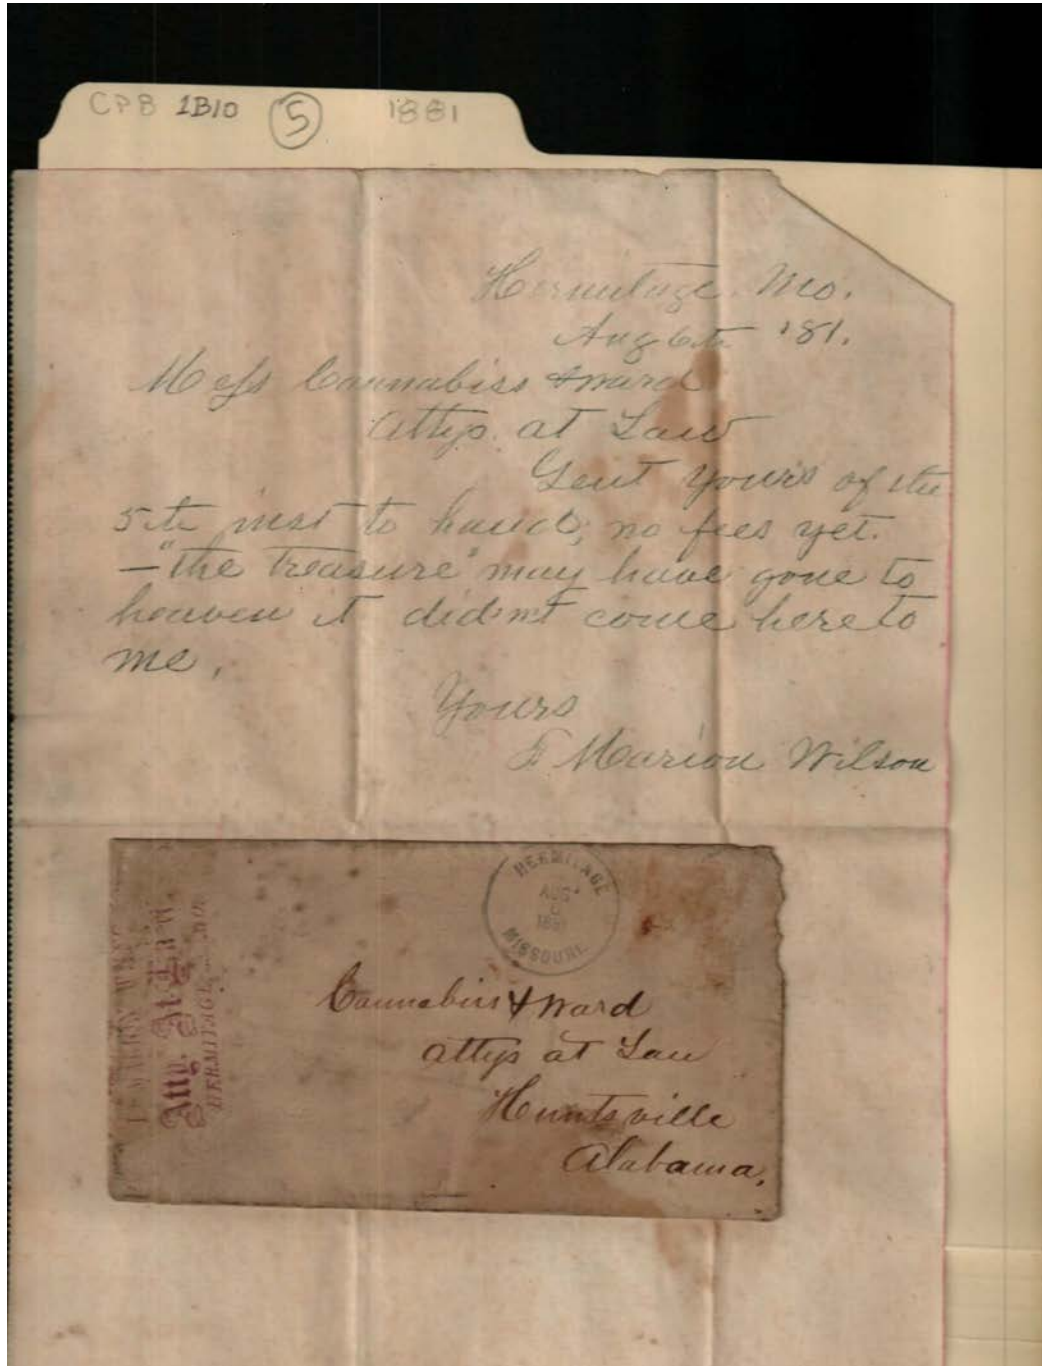 CPB 1B10 5 1881
Hermitage, Mo.
Aug 6th '81.
Mess Cannabiss & Ward
Attys. at Law
Gent Yours of the
5th inst to hand; no fees yet.
— "the treasure" may have gone to
heaven it did'nt come here to
me.
Yours
F Marion Wilson
HERMITAGE
AUG
6
1881
MISSOURI.
Atty. At Law
HERMITAGE, MO.
Cannabiss & Ward
Attys at Law
Huntsville
Alabama.